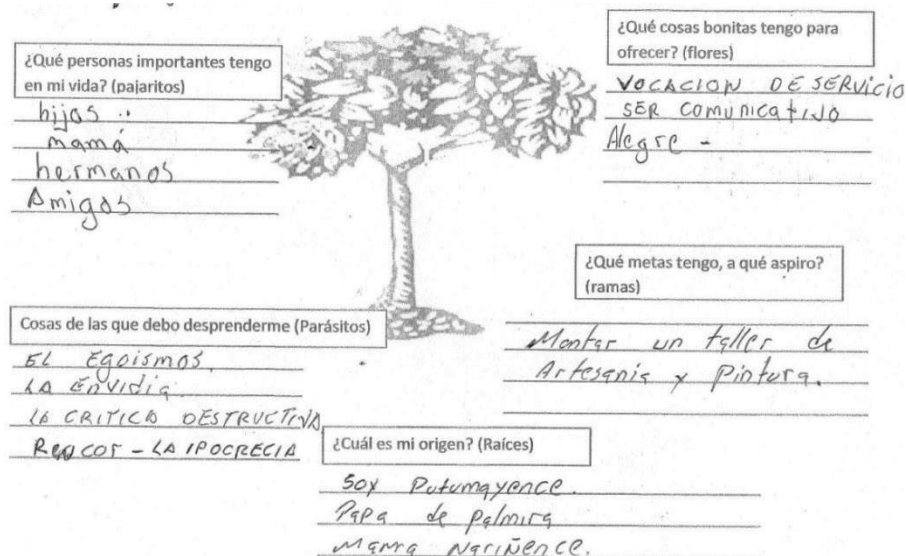 ¿Qué personas importantes tengo
en mi vida? (pajaritos)
hijos
mamá
hermanos
Amigos
¿Qué cosas bonitas tengo para
ofrecer? (flores)
VOCACION DE SERVICIO
SER COMUNICATIVO
Alegre -
¿Qué metas tengo, a qué aspiro?
(ramas)
Montar un taller de
Artesania y Pintura.
Cosas de las que debo desprenderme (Parásitos)
EL Egoismos.
LA Envidia.
LA CRITICA DESTRUCTIVA
Rencor - LA IPOCRECIA
¿Cuál es mi origen? (Raíces)
Soy Putumayence.
Papa de palmira
Mama Nariñence.